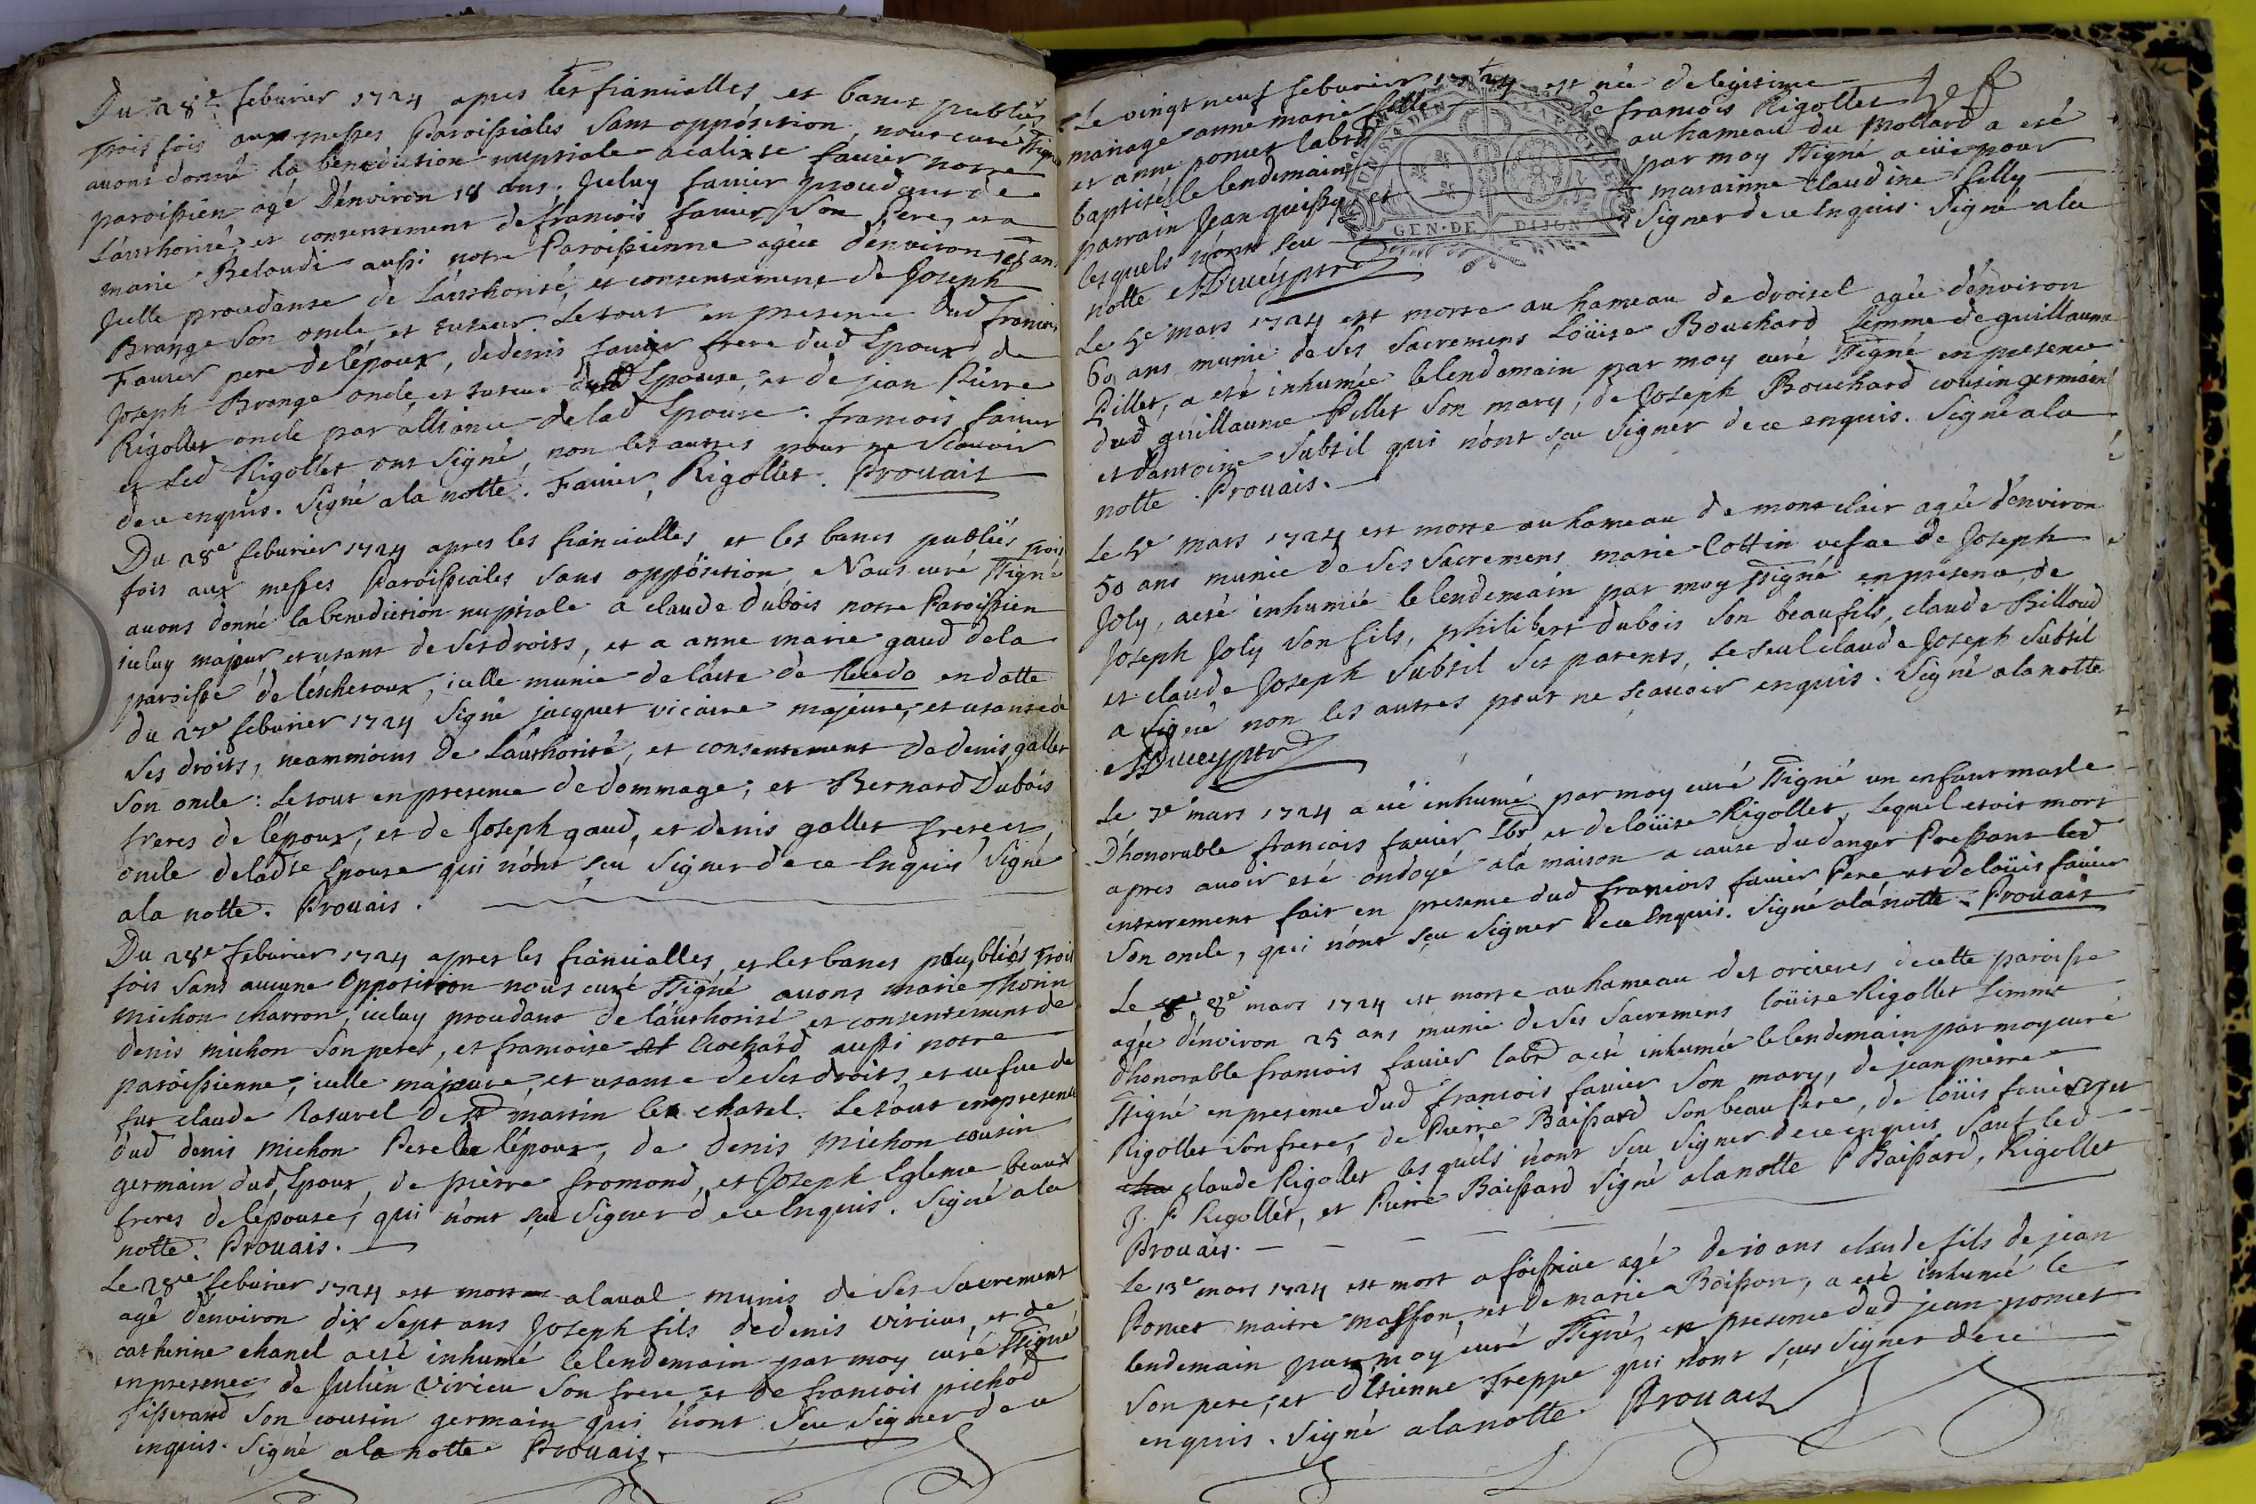 Du 28e feburier 1724 apres les fiancialles, et bancs publiés
trois fois aux messes Paroissiales sans oppósition, nous curé ssigné
avons donné la benediction nuptiale a calixte favier notre
paroissien agé D'environ 18 ans. Iceluy favier procedant de
L'authorité, et consentement de francois favier son Pere, et a
marie Beloudi aussi notre Paroissienne agée d'environ ans
Icelle procedante de L'authorité, et consentement de Joseph
Brange son oncle et tuteur. Le tout en presence Dud francois
Favier pere de lépoux, de denis favier frere dud Epoux, de
Joseph Brange oncle, et tuteur de lad Epouse, et de jean Pierre
Rigollet oncle par alliance de lad Epouse. francois favier
et Led Rigollet ont signé, non les autres pour ne scavoir
de ce enquis. Signé a la notte. Favier, Rigollet. Provais
Du 28e feburier 1724 apres les fiancialles et les bancs publiés trois
fois aux messes Paroissiales sans oppósition Nous curé ssigné
avons donné la benediction nuptiale a claude dubois notre Paroissien
iceluy majeur et usant de ses droits, et a anne marie gaud de la
paroisse de lescheroux, icelle munie de l'acte de Recedo en datte
du 27e feburier 1724 Signé jacquet vicaire majeure, et usante de
ses droits, neammoins de L'authorité, et consentement de denis gallet
son oncle: Le tout en presence de dommage, et Bernard Dubois
freres de lépoux, et de Joseph gaud, et denis gallet frere et
oncle de ladte Epouse qui n'ont sçu signer de ce Enquis Signé
a la notte. Provais.
Du 28e feburier 1724 apres les fiancialles, et les bancs publiés trois
fois sans aucune Opposition nous curé ssigné avons marié Thorin
Michon charron, iceluy procedant de l'authorité et consentement de
denis michon son pere, et francoise Cochard aussi notre
paroissienne, icelle majeure, et usante de ses droits, et vefve de
fut claude Naturel de st martin le chatel. Le tout en presence
dud denis michon Pere de lépoux, de denis Michon cousin
germain dud Epoux, de pierre fromond, et Joseph Egleme beaux
freres de lépouse, qui n'ont sçu signer de ce Enquis. Signé a la
notte. Provais.
Le 28ie feburier 1724 est mort a laval munis de ses sacrement
agé d'environ dix sept ans Joseph fils de denis Virieu, et de
catherine chanel a eté inhumé le lendemain par moy curé ssigné
en presence de Julien Virieu son frere et de francois pichod
Tisserand son cousin germain qui n'ont sçu signer de ce
enquis. Signé a la notte Provais.
Le vingt neuf feburier 1724 est née de legitime
mariage anne marie fille de francois Rigollet
et anne poncet labrd au hameau du Mollard a eté
baptisé le lendemain par moy ssigné a eu pour
parrain Jean et maraine claudine felly
lesquels n'ont sçu signer de ce Enquis. Signé a la
notte
GEN. DE DIJON
Le 5e mars 1724 est morte au hameau de droisel agée d'environ
60 ans munie de ses sacremens Loüise Bouchard femme de guillaume
Pillet, a eté inhumée le lendemain par moy curé ssigné en presence
dud guillaume Pillet son mary, de Joseph Bouchard cousin germain
et d'antoine Subtil qui n'ont sçu signer de ce enquis. Signé a la
notte Provais.
Le 5e mars 1724 est morte au hameau de mont clair agée d'environ
50 ans munie de ses sacremens marie Cottin vefve de Joseph
Joly, a eté inhumée le lendemain par moy ssigné en presence de
Joseph Joly son fils, philibert dubois son beau fils, claude Billoud
et claude Joseph Subtil ses parents, Le seul claude Joseph Subtil
a signé non les autres pour ne sçavoir enquis. Signé a la notte
Le 7e mars 1724 a eté inhumé par moy curé ssigné un enfant masle
D'honorable francois favier Lbr et de loüise Rigollet, Lequel etoit mort
apres avoir eté ondoyé a la maison a cause du danger Pressant led
enterrement fait en presence dud francois favier Pere et de loüis favier
son oncle, qui n'ont sçu signer de ce Enquis. Signé a la notte. Provais
Le 8e mars 1724 est morte au hameau des orcieres de cette paroisse
agée d'environ 25 ans munie de ses sacremens loüise Rigollet femme
d'honorable francois favier labrd a eté inhumée le lendemain par moy curé
ssigné en presence dud francois favier son mary, de jean pierre
Rigollet son frere, de Pierre Baissard son beau frere, de loüis favier et
claude Rigollet lesquels n'ont sçu signer de ce enquis sauf led
J. P Rigollet, et Pierre Baissard Signé a la notte P Baissard, Rigollet
Provais.
Le 13e mars 1724 est mort a foissiae agé de 10 ans claude fils de jean
Poncet maitre masson, et de marie Boisson, a eté inhumé le
lendemain par moy curé ssigné, en presence dud jean poncet
son pere, et d'Etienne Freppe qui n'ont sçus signer de ce
enquis. Signé a la notte Provais